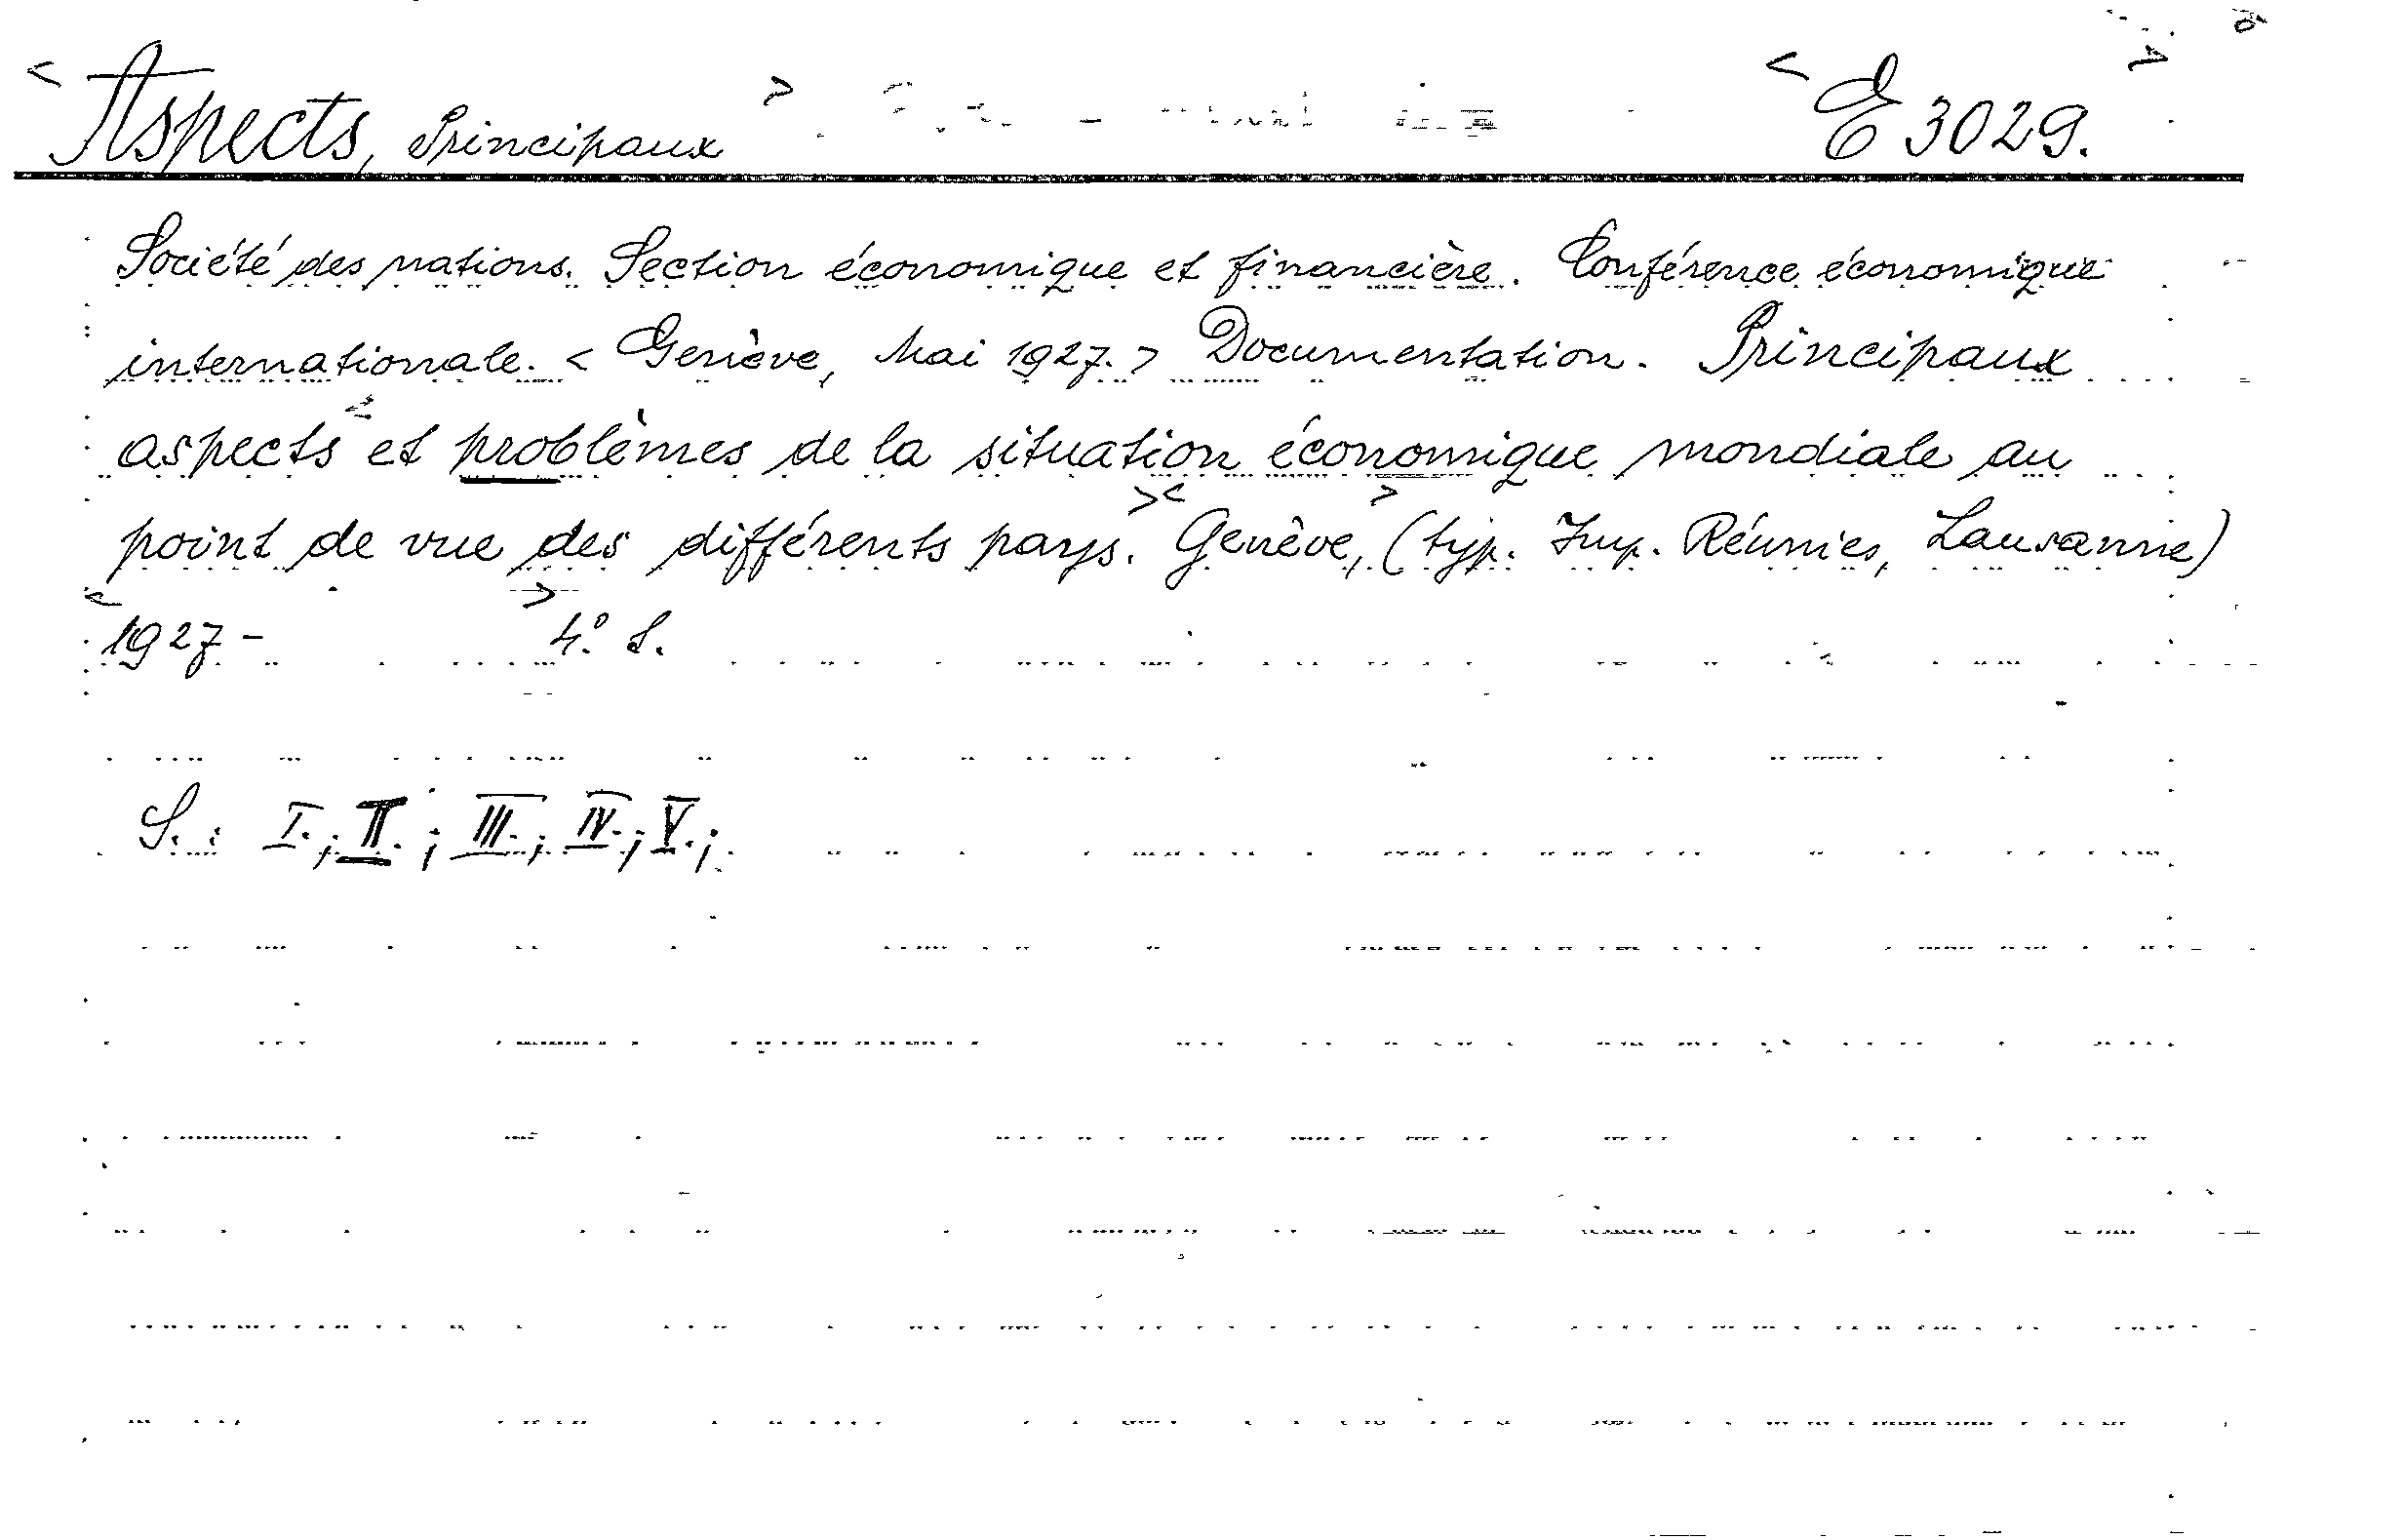 <Aspects, Principaux> <E 3029.>
Société des nations. Section économique et financière. Conférence économique
internationale. <Genève, Mai 1927.> Documentation. Principaux
aspects et problèmes de la situation économique mondiale au
point de vue des différents pays. Genève, (typ. Imp. Réunies, Lausanne)
1927 - 4° S.
S.: I.; II.; III.; IV.; V.;